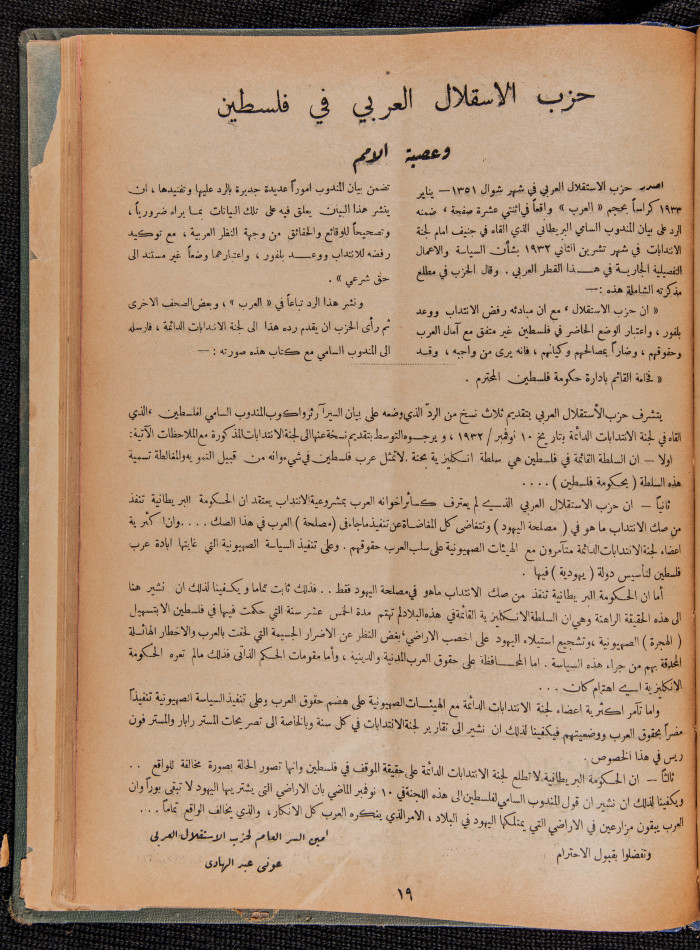 حزب الاستقلال العربي في فلسطين
وعصبة الامم
اصدر حزب الاستقلال العربي في شهر شوال ١٣٥١ – يناير
١٩٣٣ كراساً بحجم « العرب » واقعاً في اثنتي عشرة صفحة ، ضمنه
الرد على بيان المندوب السامي البريطاني الذي القاه في جنيف امام لجنة
الانتدابات في شهر تشرين الثاني ١٩٣٢ بشأن السياسة والاعمال
التفصيلية الجارية في هـذا القطر العربي . وقال الحزب في مطلع
مذكرته الشاملة هذه :—
« ان حزب الاستقلال ، مع ان مبادئه رفض الانتداب ووعد
بلفور ، واعتبار الوضع الحاضر في فلسطين غير متفق مع آمال العرب
وحقوقهم ، وضاراً بمصالحهم وكيانهم ، فانه يرى من واجبه ، وقـد
تضمن بيان المندوب اموراً عديدة جديرة بالرد عليها وتفنيدها ، ان
ينشر هذا البيان يعلق فيه على تلك البيانات بمـا يراه ضرورياً ،
وتصحيحاً للوقائع والحقائق من وجهة النظر العربية ، مع توكيد
رفضه للانتداب ووعـد بلفور ، واعتبارهما وضعاً غير مستند الى
حق شرعي » .
ونشر هذا الرد تباعاً في « العرب » ، وبعض الصحف الاخرى
ثم رأى الحزب ان يقدم رده هذا الى لجنة الانتدابات الدائمة ، فارسله
الى المندوب السامي مع كتاب هذه صورته :—
« فخامة القائم بادارة حكومة فلسطين المحترم .
يتشرف حزب الأستقلال العربي بتقديم ثلاث نسخ من الردّ الذي وضعه على بيان السير آرثر واكوب المندوب السامي لفلسطين ، الذي
القاه في لجنة الانتدابات الدائمة بتاريخ ١٠ نوفمبر / ١٩٣٢ ، ويرجـوه التوسط بتقديم نسخة عنها الى لجنة الانتدابات المذكورة مع الملاحظات الآتية :
اولا — ان السلطة القائمة في فلسطين هي سلطة انكليزية بحتة لا تمثل عرب فلسطين في شيء وانه من قبيل التمويه والمغالطة تسمية
هذه السلطة ( بحكومة فلسطين ) ....
ثانياً — ان حزب الاستقلال العربي الذـي لم يعترف كسائر اخوانه العرب بمشروعية الانتداب يعتقد ان الحكومة البريطانية تنفذ
من صك الانتداب ما هو في ( مصلحة اليهود ) وتتغاضى كل المغاضاة عن تنفيذ ما جاء في ( مصلحة ) العرب في هذا الصك .... وان اكثرية
اعضاء لجنة الانتدابات الدائمة متآمرون مع الهيئات الصهيونية على سلب العرب حقوقهم . وعلى تنفيذ السياسة الصهيونية التي غايتها ابادة عرب
فلسطين لتأسيس دولة ( يهودية ) فيها .
أما ان الحكومة البريطانية تنفذ من صك الانتداب ما هو في مصلحة اليهود فقط .. فذلك ثابت تماما ويكفينا لذلك ان نشير هنا
الى هذه الحقيقة الراهنة وهي ان السلطة الانكليزية القائمة في هذه البلاد لم تهتم مدة الخمس عشر سنة التي حكمت فيها في فلسطين الا بتسهيل
( الهجرة ) الصهيونية ، وتشجيع استيلاء اليهود على اخصب الاراضي ، بغض النظر عن الاضرار الجسيمة التي لحقت بالعرب والاخطار الهائلة
المحدقة بهم من جراء هذه السياسة . اما المحـافظة على حقوق العرب المدنية والدينية ، وأما مقومات الحكم الذاتي فذلك مالم تعره الحكومة
الانكليزية اي اهتمام كان ...
واما تآمر اكثرية اعضاء لجنة الانتدابات الدائمة مع الهيئات الصهيونية على هضم حقوق العرب وعلى تنفيذ السياسة الصهيونية تنفيذاً
مضراً بحقوق العرب ووضعيتهم فيكفينا لذلك ان نشير الى تقارير لجنة الانتدابات في كل سنة وبالخاصة الى تصريحات المستر رابار والمستر فون
ريس في هذا الخصوص .
ثالثاً — ان الحكومة البريطانية لا تطلع لجنة الانتدابات الدائمة على حقيقة الموقف في فلسطين وانها تصور الحالة بصورة مخالفة للواقع ..
ويكفينا لذلك ان نشير ان قول المندوب السامي لفلسطين الى هذه اللجنة في ١٠ نوفمبر الماضي بان الاراضي التي يشتريها اليهود لا تبقى بوراً وان
العرب يبقون مزارعين في الاراضي التي يمتلكها اليهود في البلاد ، الامر الذي ينكره العرب كل الانكار ، والذي يخالف الواقع تماماً ...
وتفضلوا بقبول الاحترام
امين السر العام لحزب الاستقلال العربي
عوني عبد الهادي
١٩